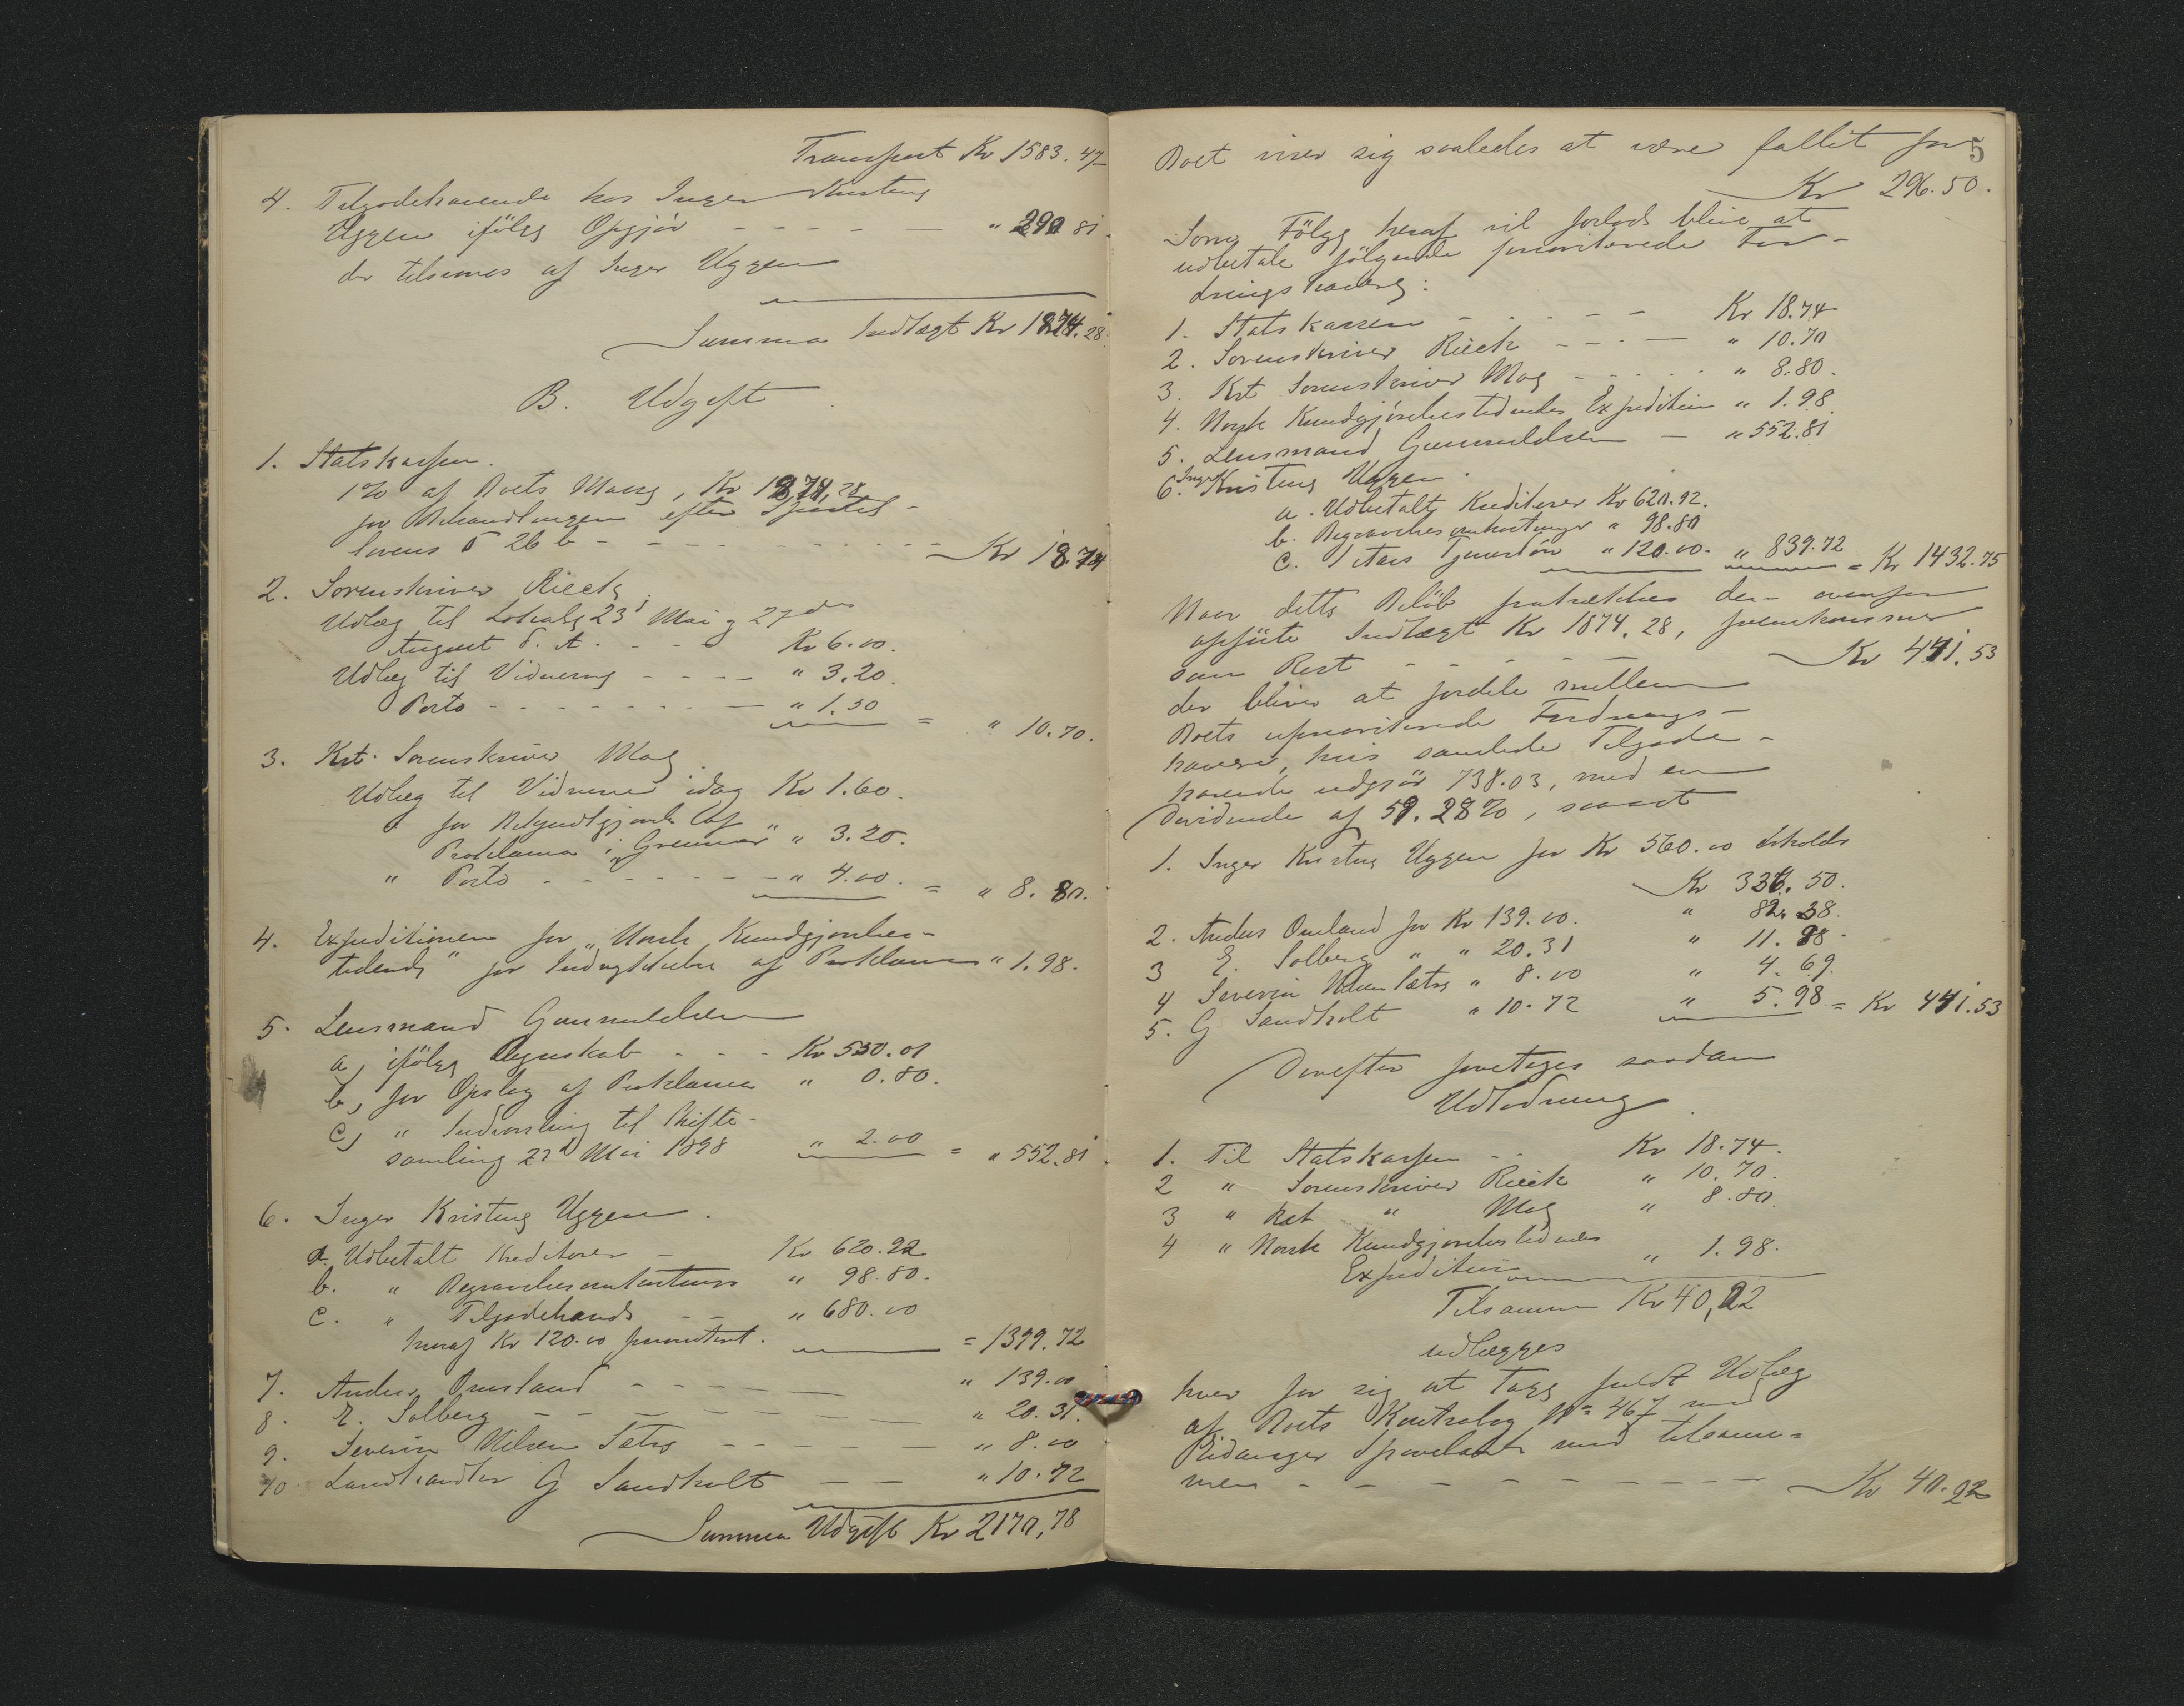 Transport Kr 1583.47
4. Tilgodehavende hos Inger Kristine
Uggen ifölge Opgjör - - - - - " 290 81.
der tilsvares af Inger Uggen
Summa Indtægt Kr 1874.28
B. Udgift
1. Statskassen.
1% af Boets Masse, Kr 1874,28
for Behandlingen efter Sportel-
lovens § 26 b - - - - - - Kr 18.74
2. Sorenskriver Rieck
Udlæg til Lokale 23 Mai og 27de
August d. A. - - - Kr 6.00.
Udlæg til Vidnerne - - - - " 3.20.
Porto - - - - - - - " 1.50 = " 10.70.
3. Kst. Sorenskriver Moe
Udlæg til Vidnerne idag Kr 1.60.
for Bekjendtgjørelse af
Proklama i "Grenmar" " 3.20.
" Porto - - - - - - " 4.00. = " 8.80.
4. Expeditionen for "Norsk Kundgjørelses-
tidende" for Indrykkelse af Proklama " 1.98.
5. Lensmand Gunnuldsen
a, ifölge Regnskab - - - Kr 550.01
b, for Opslag af Proklama " 0.80.
c, " Indvarsling til Skifte-
samling 23 Mai 1898 " 2.00 = " 552.81.
6. Inger Kristine Uggen.
a. Udbetalt Kreditorer - Kr 620.92
b. " Begravelsesomkostninger " 98.80.
c. " Tilgodehavende - - " 680.00
hvoraf Kr 120.00 prioritert. = 1399.72
7. Anders Omland - - - - " 139.00
8. E. Solberg - - - - " 20.31.
9. Severin Nilsen Sætre - - - - " 8.00
10. Landhandler G Sandholt - - " 10.72
Summa Udgift Kr 2170,78
5
Boet viser sig saaledes at være fallit for
Kr 296.50.
Som Følge heraf vil forlods blive at
udbetale følgende prioriterede For-
dringshavere:
1. Statskassen - - - - - Kr 18.74
2. Sorenskriver Rieck - - - - " 10.70
3. Kst Sorenskriver Moe - - - - " 8.80.
4. Norsk Kundgjörelsestidendes Expedition " 1.98.
5. Lensmand Gunnuldsen - " 552.81
6. Inger Kristine Uggen.
a. Udbetalt Kreditorer Kr 620.92.
b. Begravelsesomkostninger " 98.80
c. 1 Aars Tjenerlön " 120.00. " 839.72 = Kr 1432.75
Naar dette Beløb fratrækkes den ovenfor
opførte Indtægt Kr 1874,28, fremkommer
som Rest - - - - - Kr 441.53
der bliver at fordele mellem
Boets uprioriterede Fordrings-
havere, hvis samlede Tilgode-
havende udgjör 738.03, med en
Dividende af 59.28%, saaat
1. Inger Kristine Uggen for Kr 560.00 erholder
Kr 336.50.
2. Anders Omland for Kr 139.00. " 82.38.
3 E. Solberg " " 20.31 " 11.98.
4 Severin Nilsen Sætre " 8.00 " 4.69.
5. G Sandholt " 10.72 " 5.98 = Kr 441.53
Derefter foretages saadan
Udlodning.
1. Til Statskassen - - Kr 18.74.
2 " Sorenskriver Rieck " 10.70.
3 " Kst " Moe " 8.80.
4 " Norsk Kundgjørelsestidendes
Expedition " 1.98.
Tilsammen Kr 40,22
udlægges
hver for sig at tage fuldt Udlæg
af Boets Kontrabog No 467 med
Eidanger Sparebank med tilsam-
men - - - - - - - - Kr 40.22